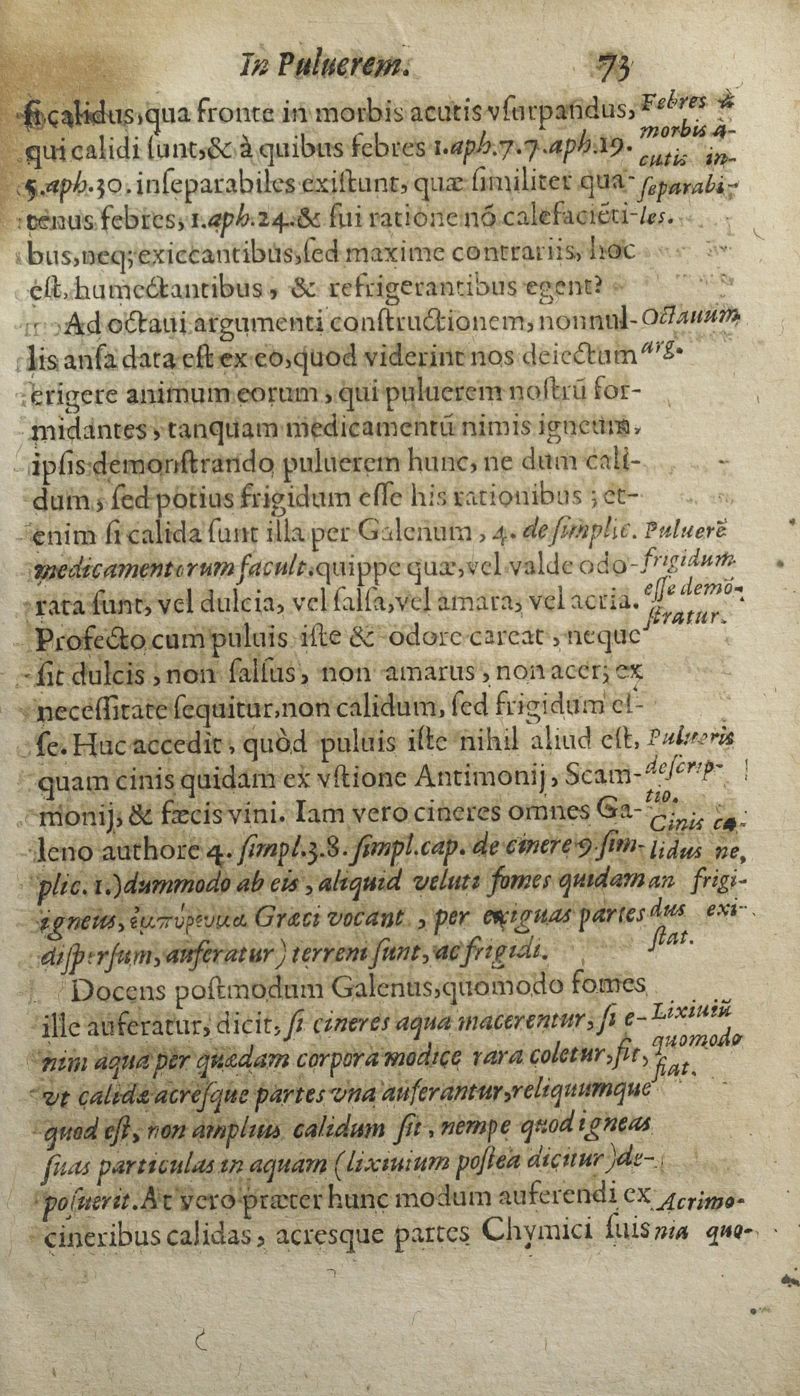 In Puluerem. 73
ſi calidus, qua fronte in morbis acutis vſurpandus,
qui calidi ſunt, & à quibus febres 1.aph.7.7.aph.19.
5.aph.30. inſeparabiles exiſtunt, quæ ſimiliter qua-
tenus febres, 1.aph.24. & ſui ratione nō calefaciēti-
bus, neq; exiccantibus, ſed maxime contrariis, hoc
eſt, humectantibus, & refrigerantibus egent?
Ad octaui argumenti conſtructionem, nonnul-
lis anſa data eſt ex eo, quod viderint nos deiectum
erigere animum eorum, qui puluerem noſtrū for-
midantes, tanquam medicamentū nimis igneum,
ipſis demonſtrando puluerem hunc, ne dum cali-
dum, ſed potius frigidum eſſe his rationibus; et-
enim ſi calida ſunt illa per Galenum, 4. de ſimplic.
medicamentorum facult. quippe quæ, vel valde odo-
rata ſunt, vel dulcia, vel ſalſa, vel amara, vel acria.
Profecto cum puluis iſte & odore careat, neque
ſit dulcis, non ſalſus, non amarus, non acer; ex
neceſſitate ſequitur, non calidum, ſed frigidum eſ-
ſe. Huc accedit, quòd puluis iſte nihil aliud eſt,
quam cinis quidam ex vſtione Antimonij, Scam-
monij, & fæcis vini. Iam vero cineres omnes Ga-
leno authore 4. ſimpl.3.8. ſimpl.cap. de cinere 9 ſim-
plic. 1.) dummodo ab eis, aliquid veluti fomes quidam
igneus, ἐμπύρευμα Græci vocant, per exiguas partes
diſperſum, auferatur) terreni ſunt, ac frigidi.
Docens poſtmodum Galenus, quomodo fomes
ille auferatur, dicit, ſi cineres aqua macerentur, ſi e-
nim aqua per quædam corpora modice rara coletur, fit,
vt calidæ acreſque partes vna auferantur, reliquumque
quod eſt, non amplius calidum ſit, nempe quod igneas
ſuas particulas in aquam (lixiuium poſtea dicitur) de-
poſuerit. At vero præter hunc modum auferendi ex
cineribus calidas, acresque partes Chymici ſuis
Febres à
morbis a-
cutis in-
ſeparabi-
les.
Octauum
arg.
Puluerē
frigidum
eſſe demō-
ſtratur.
Pulueris
deſcrip-
tio.
Cinis ca-
lidus ne,
an frigi-
dus exi-
ſtat.
Lixiuiū
quomodo
fiat.
Acrimo-
nia quo-